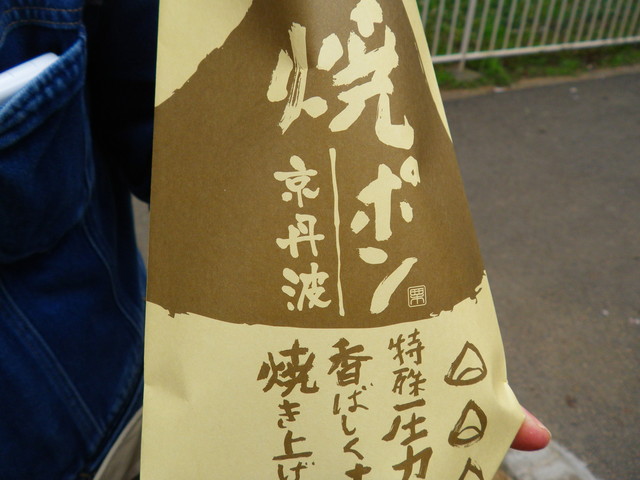 焼ポン
京丹波
栗
特殊圧力
香ばしく
焼き上げ